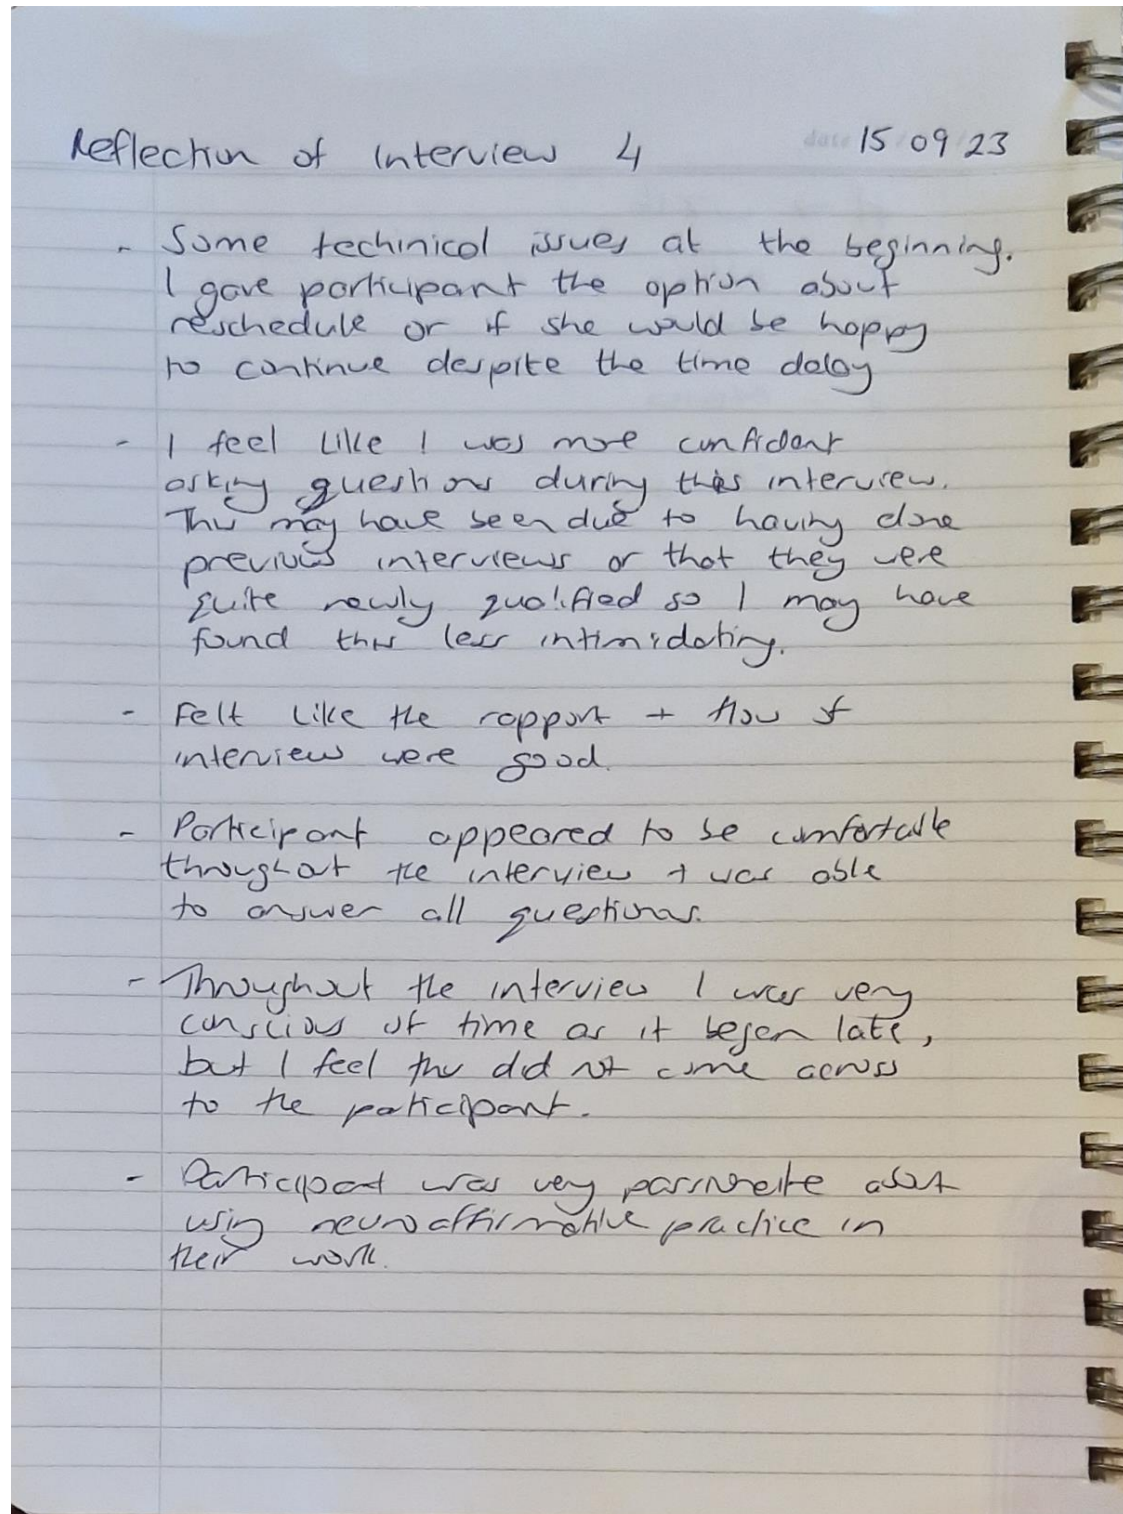 Reflection of Interview 4 date 15 09 23
- Some techinical issues at the beginning.
I gave participant the option about
reschedule or if she would be happy
to continue despite the time delay
- I feel like I was more confident
asking questions during this interview.
This may have been due to having done
previous interviews or that they were
quite newly qualified so I may have
found this less intimidating.
- Felt like the rapport + flow of
interview were good.
- Participant appeared to be comfortable
throughout the interview + was able
to answer all questions.
- Throughout the interview I was very
conscious of time as it began late,
but I feel this did not come across
to the participant.
- Participant was very passionate about
using neuroaffirmative practice in
their work.